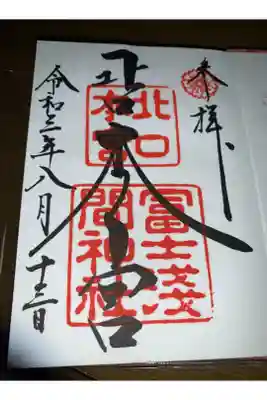 奉拝
北口本宮
北口
本宮
冨士浅
間神社
令和三年八月十三日